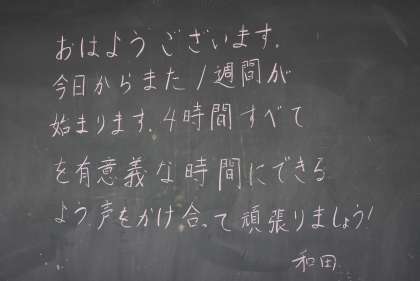 おはようございます.
今日からまた1週間が
始まります.4時間すべて
を有意義な時間にできる
よう声をかけ合って頑張りましょう!
和田